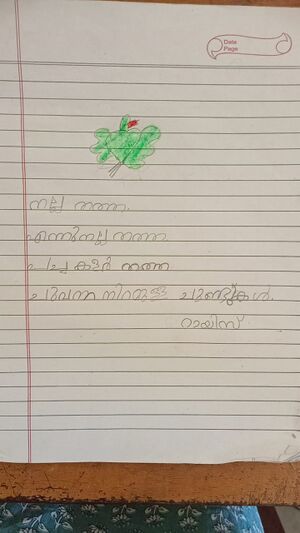 Date
Page
നല്ല തത്ത.
എന്തുനല്ല തത്ത.
പച്ച കളർ തത്ത
ചുവന്ന നിറമുള്ള ചുണ്ടുകൾ.
റായിസ്